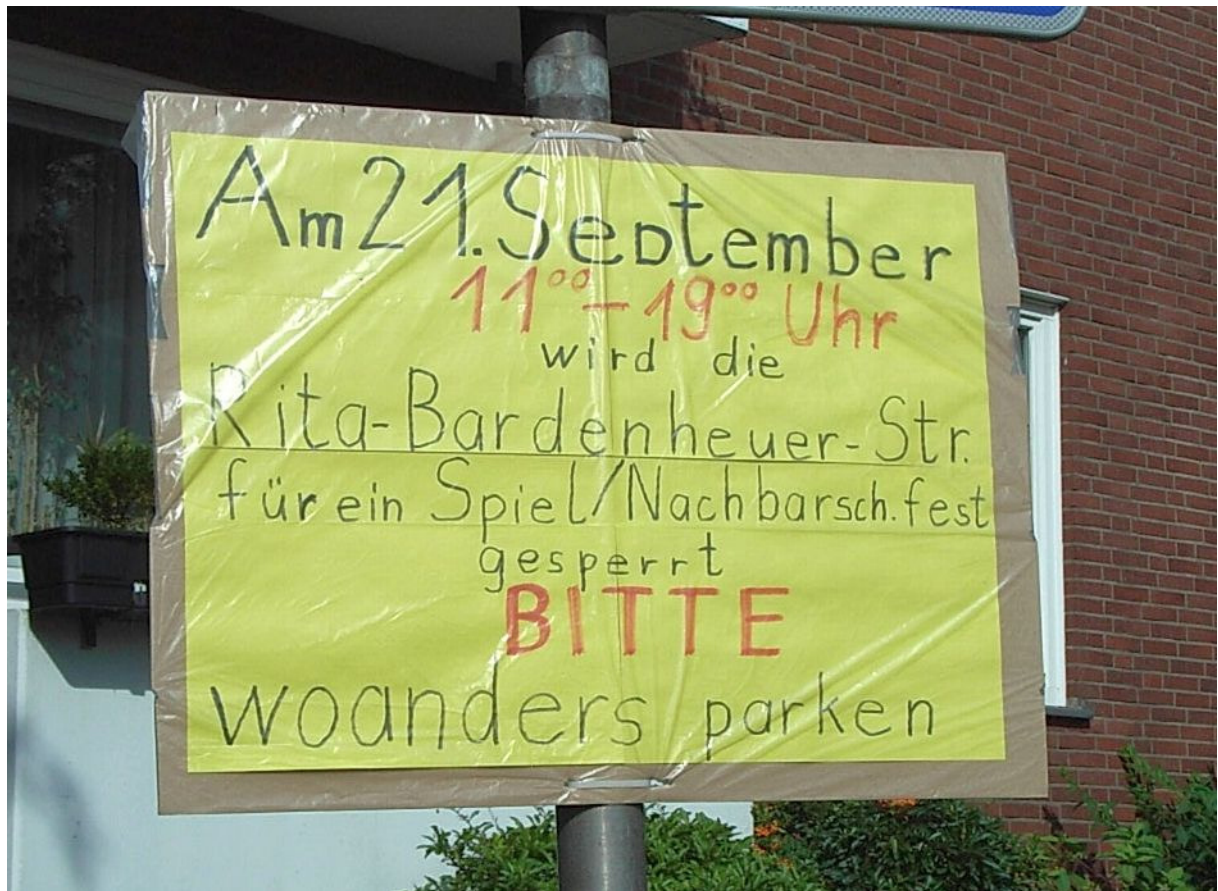 Am 21. September
11⁰⁰ - 19⁰⁰ Uhr
wird die
Rita-Bardenheuer-Str.
für ein Spiel/Nachbarsch.fest
gesperrt
BITTE
woanders parken